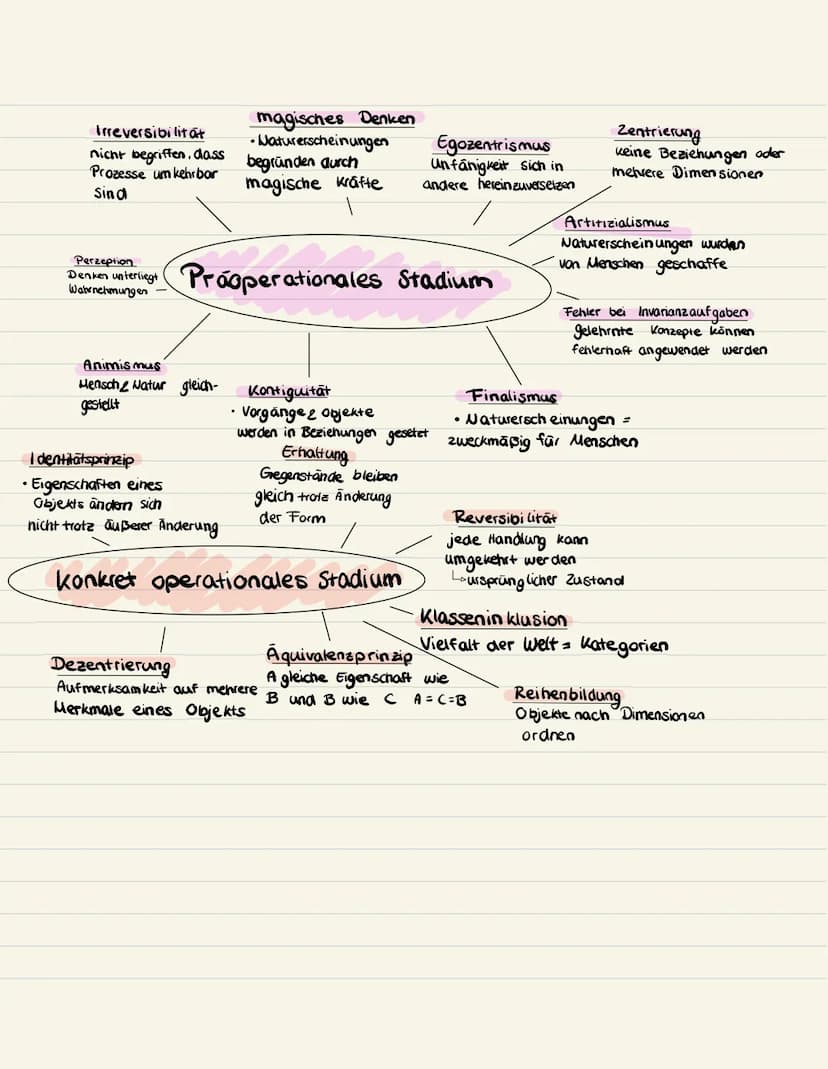 Irreversibilität
nicht begriffen, dass
Prozesse umkehrbar
sind
magisches Denken
• Naturerscheinungen
begründen durch
magische Kräfte
Egozentrismus
Unfähigkeit sich in
andere hereinzuversetzen
Zentrierung
keine Beziehungen oder
mehrere Dimensionen
Artifizialismus
Naturerscheinungen wurden
von Menschen geschaffe
Perzeption
Denken unterliegt
Wahrnehmungen
Präoperationales Stadium
Fehler bei Invarianzaufgaben
gelehrnte Konzepte können
fehlerhaft angewendet werden
Animismus
Mensch & Natur gleich-
gestellt
Kontiguität
• Vorgänge & Objekte
werden in Beziehungen gesetzt
Finalismus
• Naturerscheinungen =
zweckmäßig für Menschen
Identitätsprinzip
• Eigenschaften eines
Objekts ändern sich
nicht trotz äußerer Änderung
Erhaltung
Gegenstände bleiben
gleich trotz Änderung
der Form
Reversibilität
jede Handlung kann
umgekehrt werden
↳ ursprünglicher Zustand
Konkret operationales Stadium
Klasseninklusion
Vielfalt der Welt = Kategorien
Dezentrierung
Aufmerksamkeit auf mehrere
Merkmale eines Objekts
Äquivalenzprinzip
A gleiche Eigenschaft wie
B und B wie C A=C=B
Reihenbildung
Objekte nach Dimensionen
ordnen